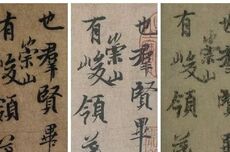 也羣賢畢
有崇山峻領
也羣賢畢
有崇山峻領
也羣賢畢
有崇山峻領